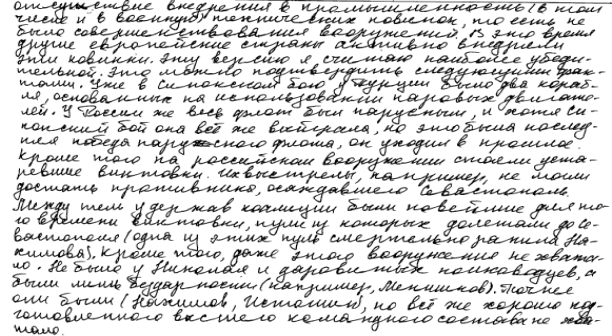 отсутствие внедрения в промышленность (в том
числе и в военную) технических новинок, то есть не
было совершенствования вооружений. В это время
другие европейские страны активно внедряли
эти новинки. Эту версию я считаю наиболее убеди-
тельной. Это можно подтвердить следующими фак-
тами. Уже в Синопском бою у Турции было два кораб-
ля, основанных на использовании паровых двигате-
лей. У России же весь флот был парусным, и хотя Си-
нопский бой она всё же выиграла, но это была послед-
няя победа парусного флота, он уходил в прошлое.
Кроме того на российском вооружении стояли уста-
ревшие винтовки. Их выстрелы, например, не могли
достать противника, осаждавшего Севастополь.
Между тем у держав коалиции были новейшие для то-
го времени винтовки, пули из которых долетали до Се-
вастополя (одна из этих пуль смертельно ранила На-
химова). Кроме того, даже этого вооружения не хвата-
ло. Не было у Николая и даровитых полководцев, а
были лишь бездарности (например, Меншиков). Точнее
они были (Нахимов, Истомин), но всё же хорошо под-
готовленного высшего командного состава не хва-
тало.